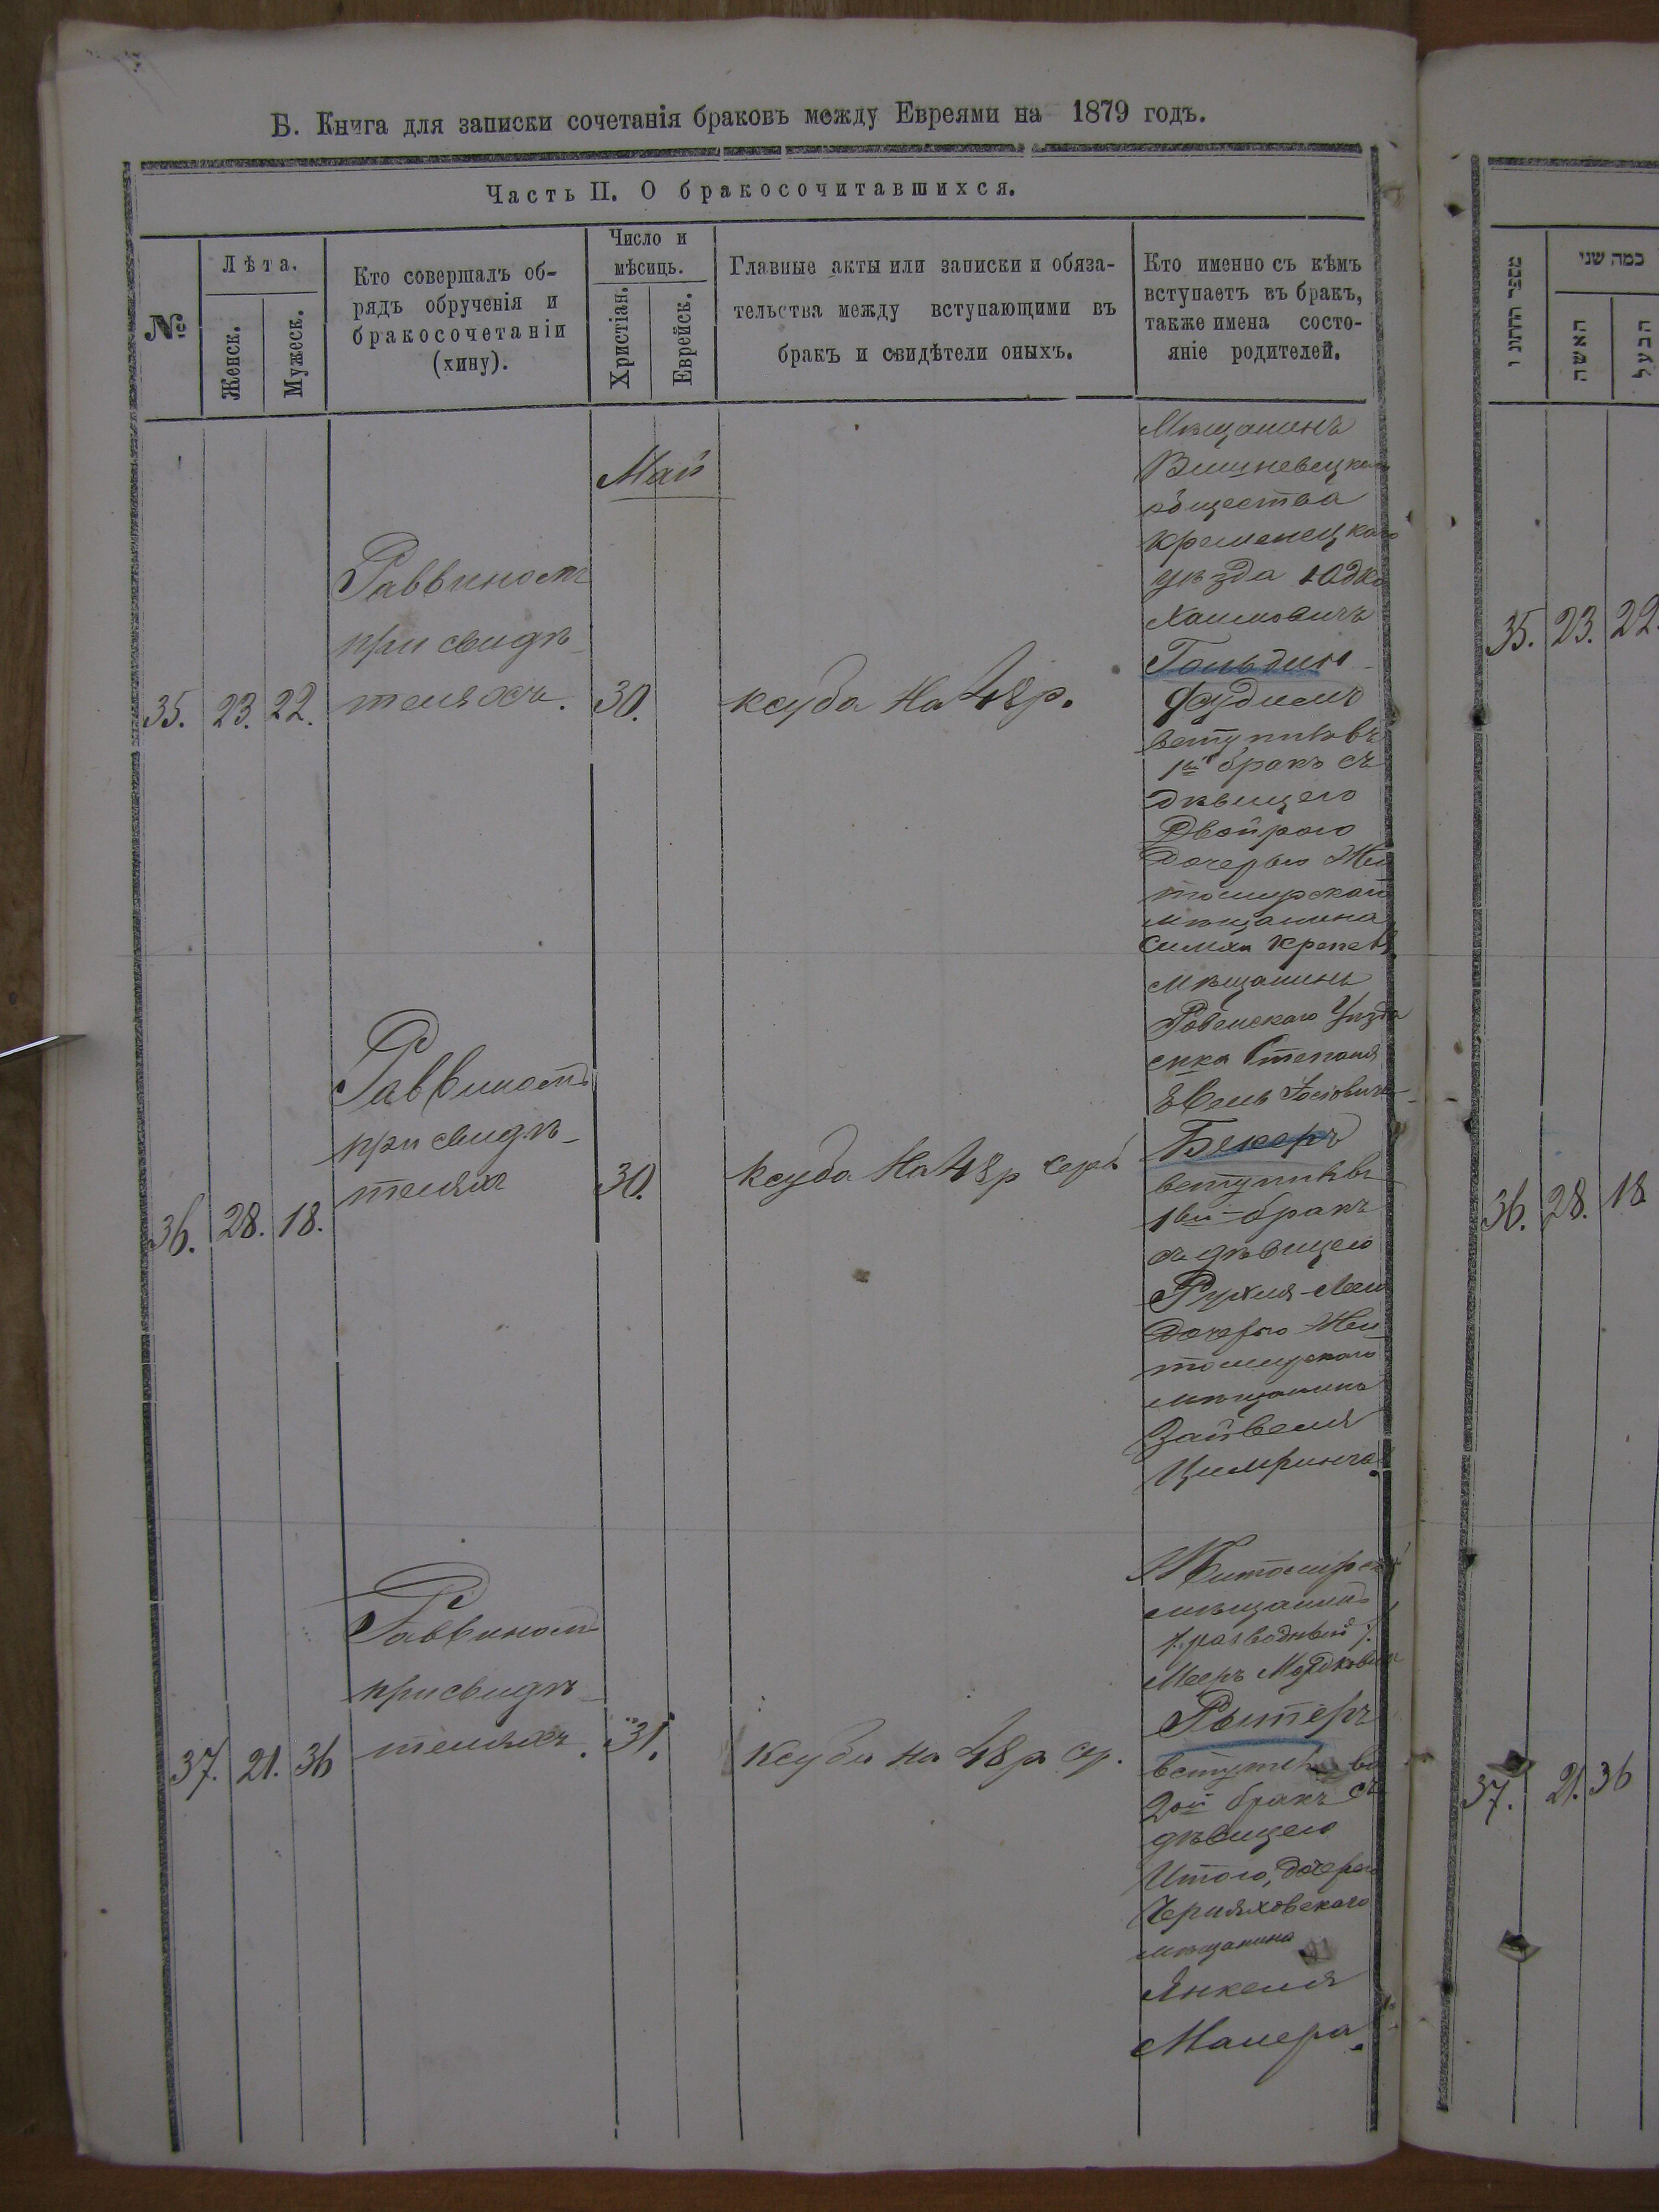 Б. Книга для записки сочетанія браковъ между Евреями на 1879 годъ.
Часть II. О бракосочитавшихся.
№
Лѣта.
Женск.
Мужеск.
Кто совершалъ об-
рядъ обрученія и
бракосочетаніи
(хину).
Число и
мѣсяць.
Христіан.
Еврейск.
Главные акты или записки и обяза-
тельства между вступающими въ
бракъ и свидѣтели оныхъ.
Кто именно съ кѣмъ
вступаетъ въ бракъ,
также имена состо-
яніе родителей.
Май
35. 23. 22.
Раввиномъ
при свидѣ-
теляхъ.
30.
ксуба на 48 р.
Мѣщанинъ
Вишневецкаго
общества
Кременецкаго
уѣзда Юдко
Хаимовичъ
Гольдин
вступилъ въ
1й бракъ съ
дѣвицею
Двойрою
дочерью Жи
томирскаго
мѣщанина
Симхи
36. 28. 18.
Раввиномъ
при свидѣ-
теляхъ
30.
ксуба на 48 р сер
Мѣщанинъ
Ровенскаго Уѣзда
Степаня
Бекеръ
вступилъ въ
1вй бракъ
съ дѣвицею
Рухля-Леи
дочерью Жи-
томирскаго
мѣщанина
Зайвеля
37. 21. 36
Раввиномъ
при свидѣ-
теляхъ.
31.
ксуба на 48 р ср.
Житомирскій
мѣщанинъ
/:разводный:/
Мееръ Мордковичъ
вступилъ во
2ой бракъ съ
дѣвицею
Итою, дочерью
Черняховскаго
мѣщанина
Янкеля
Малера.
מספר החתונו
כמה שני
האשה
הבעל
35. 23. 22.
36. 28. 18
37. 21. 36